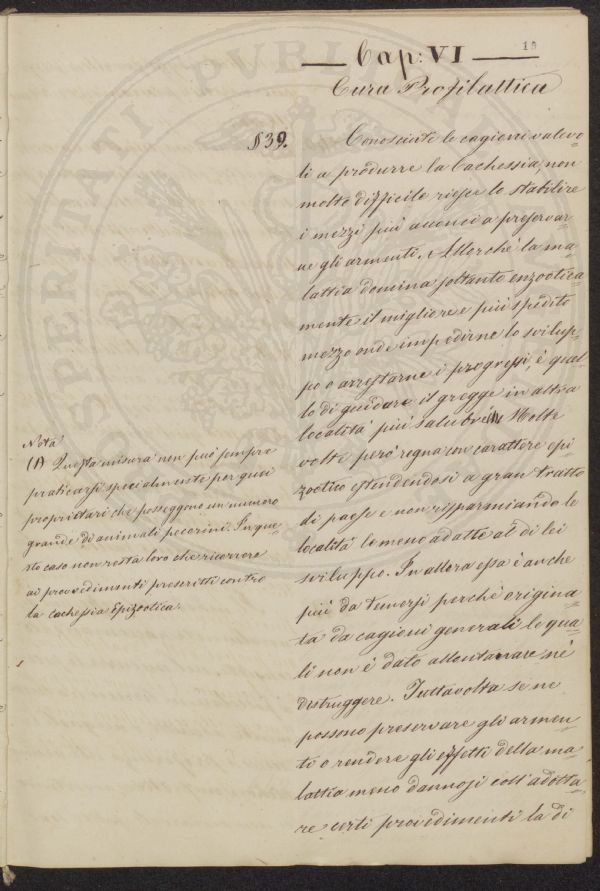 19
Cap: VI
Cura Profilattica
§ 39. Conosciute le cagioni valevo=
li a produrre la Cachessia, non
molto difficile riesce lo stabilire
i mezzi più acconci a preservar=
ne gli armenti. Allorchè la ma=
lattia domina soltanto enzootica=
mente il migliore e più spedito
mezzo onde impedirne lo svilup=
po o arrestarne i progressi, è quel=
lo di guidare il gregge in altra
località più salubre (1) Molte
volte però regna con carattere epi=
zootico estendendosi a gran tratto
di paese e non risparmiando le
località le meno adatte al di lei
sviluppo. In allora essa è anche
più da temersi perchè origina=
ta da cagioni generali le qua=
li non è dato allontanare nè
distruggere. Tuttavolta se ne
possono preservare gli armen=
ti o rendere gli effetti della ma=
lattia meno dannosi coll'adotta=
re certi provvedimenti la di
Nota
(1) Questa misura non può sempre
praticarsi specialmente per quei
proprietari che posseggono un numero
grande di animali pecorini. In que=
sto caso non resta loro che ricorrere
ai provvedimenti prescritti contro
la cachessia Epizootica.